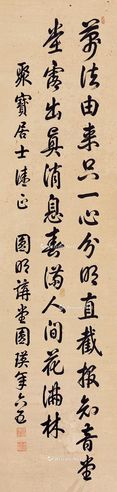 万法由来只一心分明直截报知音堂
堂露出真消息春满人间花满林
聚宝居士清正 圆明讲堂圆瑛年六五